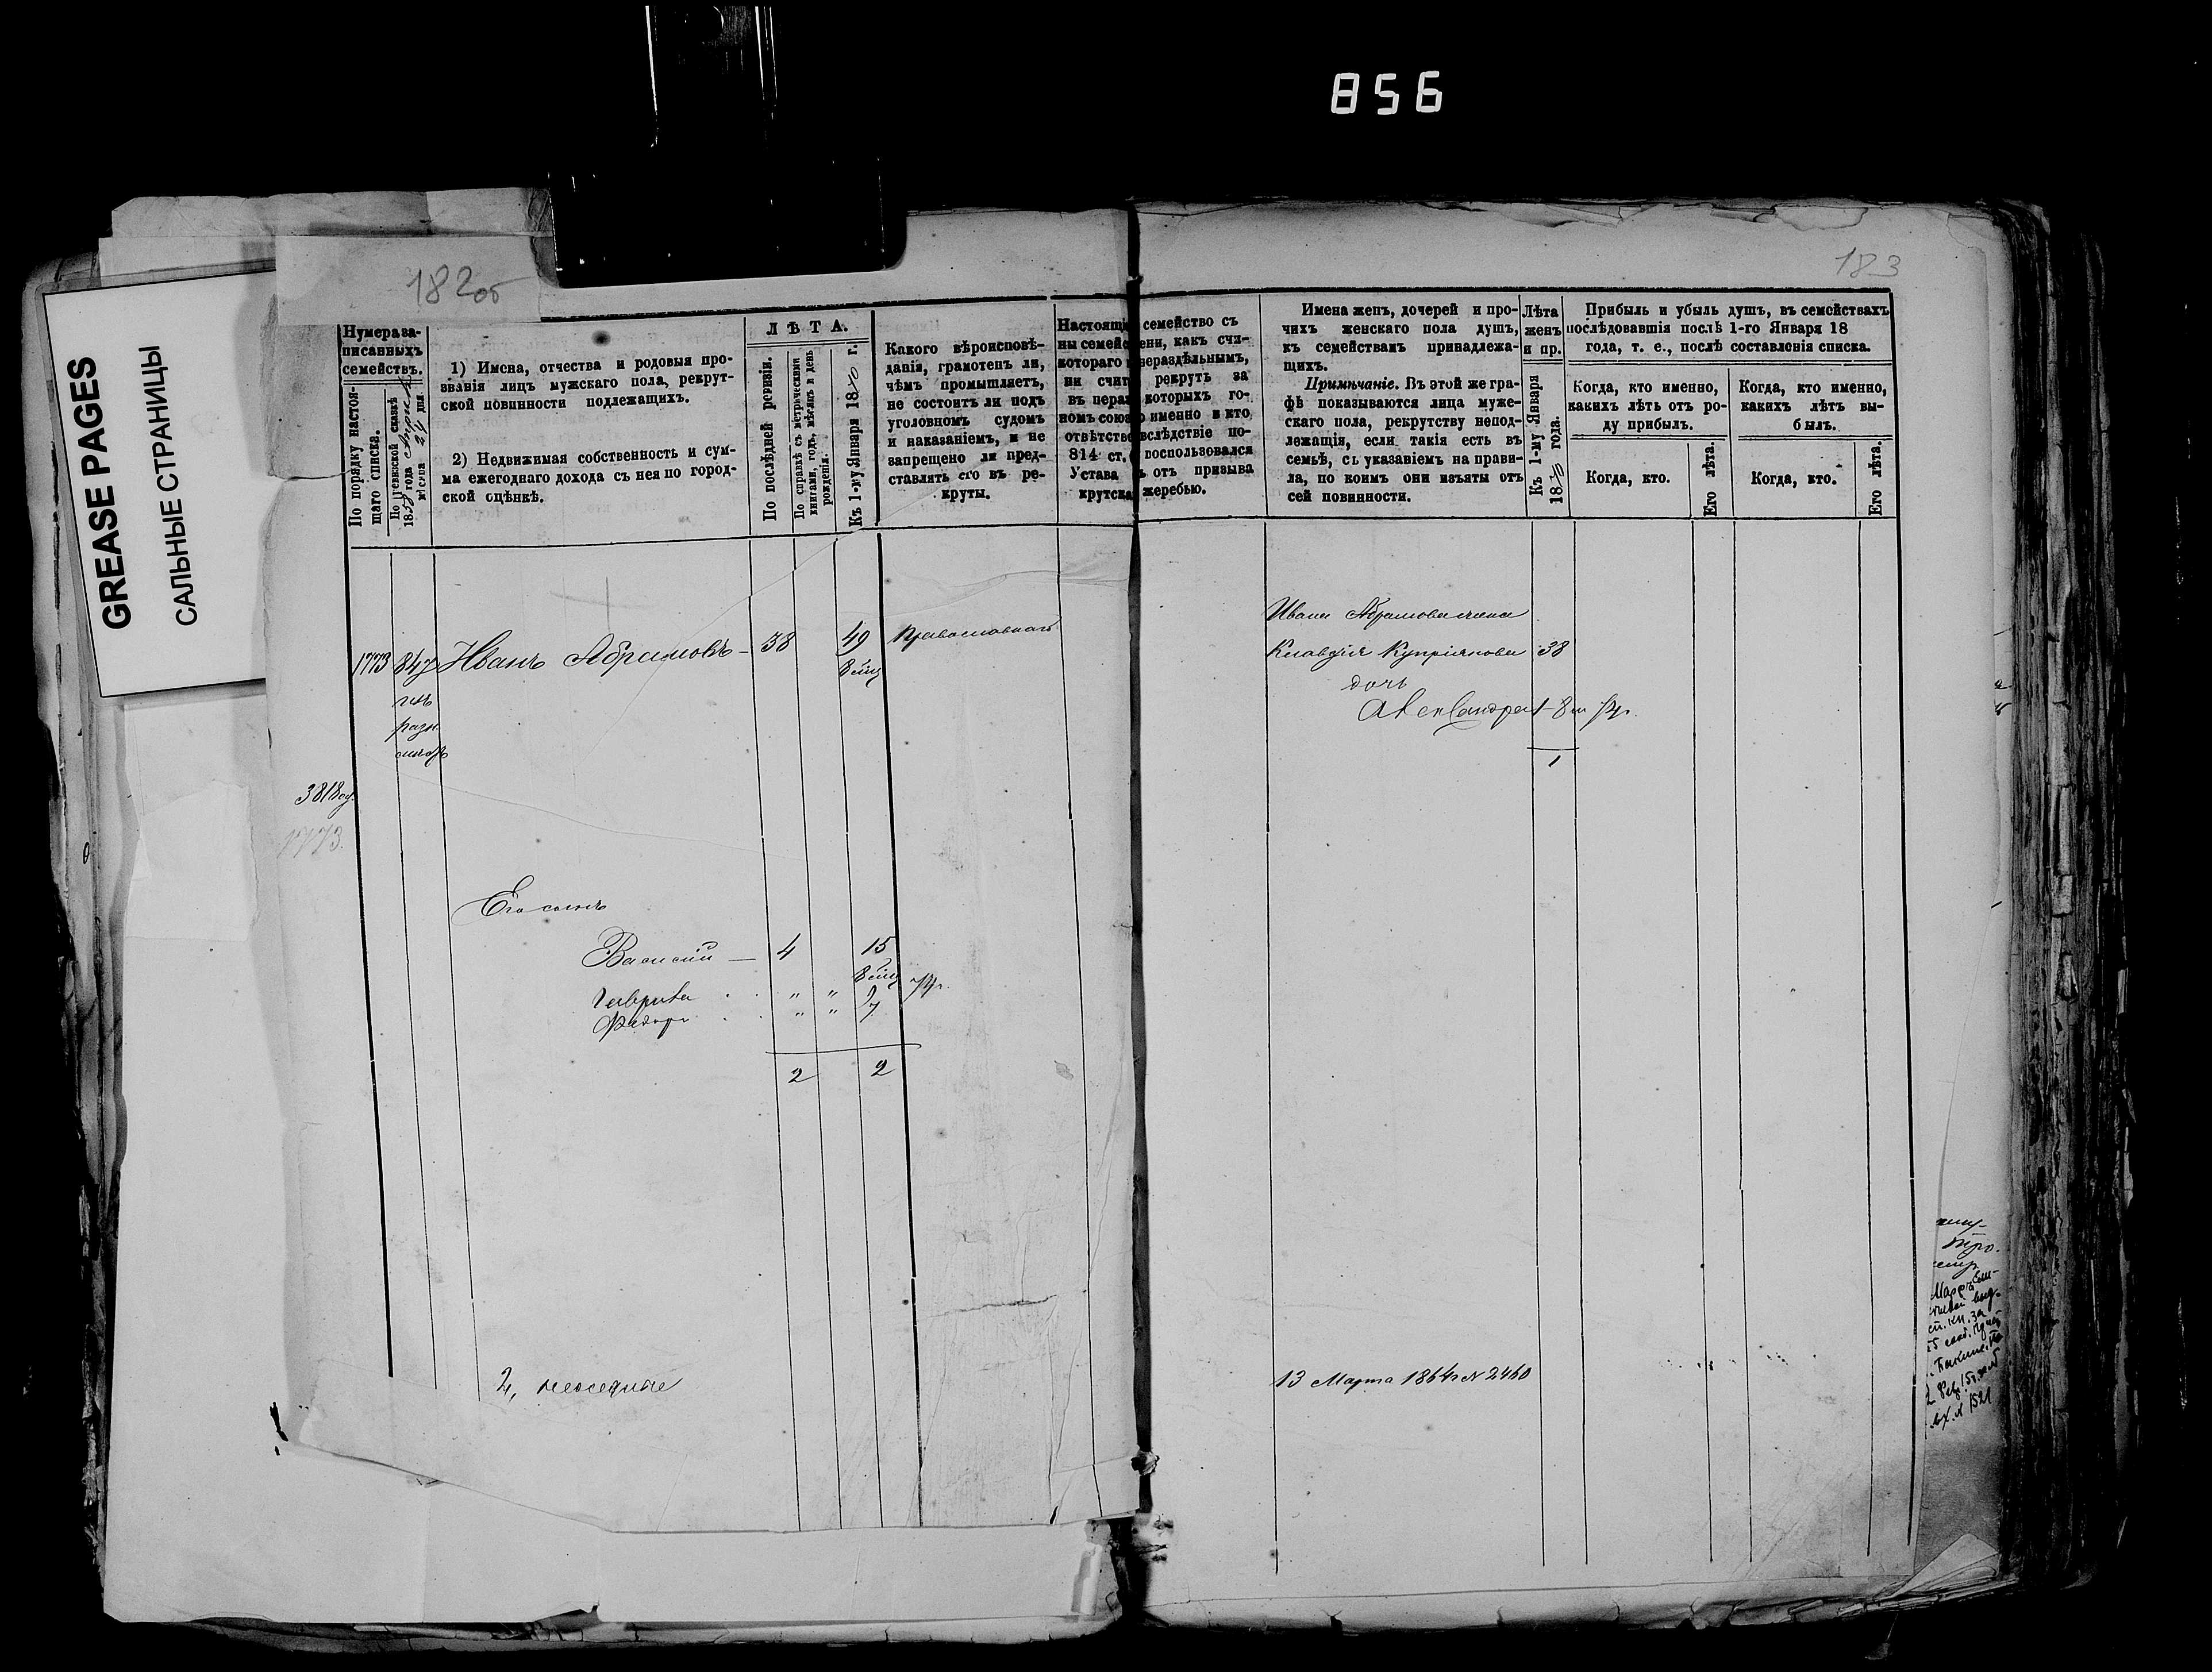 856
GREASE PAGES
САЛЬНЫЕ СТРАНИЦЫ
182об
183
Нумера за-
писанныхъ
семействъ.
По порядку настоя-
щаго списка.
По ревизской сказкѣ
18 года
мѣсяца дня
1) Имена, отчества и родовыя про-
званія лицъ мужскаго пола, рекрут-
ской повинности подлежащихъ.
2) Недвижимая собственность и сум-
ма ежегоднаго дохода съ нея по город-
ской оцѣнкѣ.
ЛѢТА.
По послѣдней ревизіи.
По справкѣ съ метрическими
книгами, годъ, мѣсяцъ и день
рожденія.
Къ 1-му Января 1870 г.
Какого вѣроисповѣ-
данія, грамотенъ ли,
чѣмъ промышляетъ,
не состоитъ ли подъ
уголовномъ судомъ
и наказаніемъ, и не
запрещено ли пред-
ставлять его въ ре-
круты.
Настоящі семейство съ
ны семейс ени, какъ счи-
котораго нераздѣльнымъ,
ни счит рекрутъ за
въ нераз которыхъ го-
номъ союз о именно и кто,
отвѣтств вслѣдствіе по-
814 ст. воспользовался
Устава ъ отъ призыва
крутска жеребью.
Имена женъ, дочерей и про-
чихъ женскаго пола душъ,
къ семействамъ принадлежа-
щихъ.
Примѣчаніе. Въ этой же гра-
фѣ показываются лица муже-
скаго пола, рекрутству непод-
лежащія, если такія есть въ
семьѣ, съ указаніемъ на прави-
ла, по коимъ они изъяты отъ
сей повинности.
Лѣта
женъ
и пр.
Къ 1-му Января
1870 года.
Прибыль и убыль душъ, въ семействахъ
послѣдовавшія послѣ 1-го Января 18
года, т. е., послѣ составленія списка.
Когда, кто именно,
какихъ лѣтъ отъ ро-
ду прибылъ.
Когда, кто.
Его лѣта.
Когда, кто именно,
какихъ лѣтъ вы-
былъ.
Когда, кто.
Его лѣта.
1773 847 Иванъ Абрамовъ — 38 49 Православнаго
Ивана Абрамова жена
Клавдія Купріянова 38
дочь
Александра 1
1
3818
1773.
Его сынъ
Василій — 4 15
Гаврила " "
Федоръ " "
2 2
13 Марта 1864г № 2460